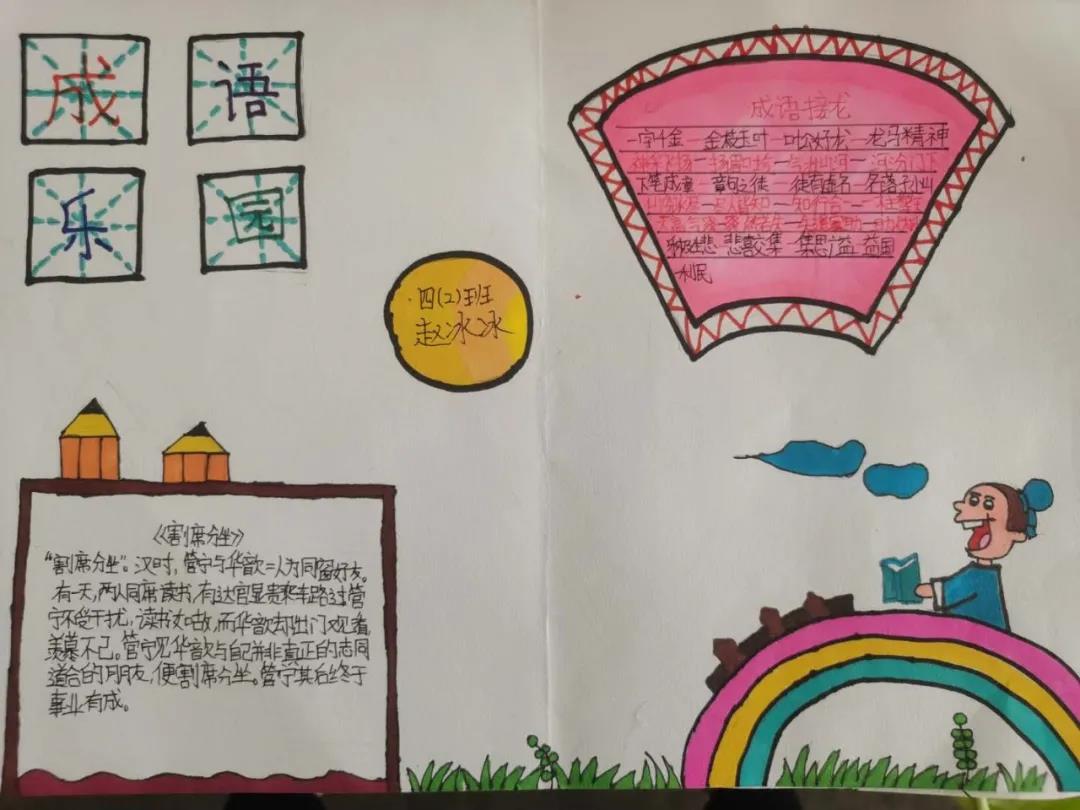 成 语
乐 园
四(2)班
赵冰冰
成语接龙
一字千金—金枝玉叶—叶公好龙—龙马精神
神采飞扬—扬眉吐气—山河—河汾门下
下笔成章—章句之徒—徒有虚名—名落孙山
知行合一
乐极生悲 悲喜交集 集思广益 益国
利民
《割席分坐》
“割席分坐”。汉时,管宁与华歆二人为同窗好友。
有一天,两人同席读书,有达官显贵乘车路过,管
宁不受干扰,读书如故,而华歆却出门观看,
羡慕不已。管宁见华歆与自己并非真正的志同
道合的朋友,便割席分坐。管宁其后终于
事业有成。